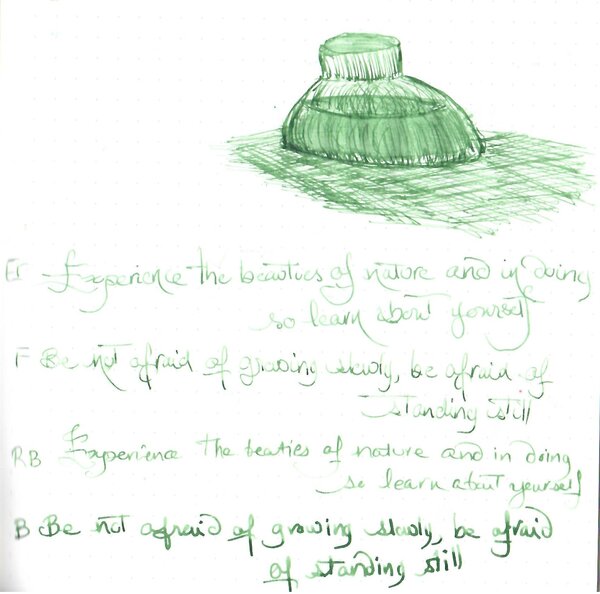 EF Experience the beauties of nature and in doing
so learn about yourself
F Be not afraid of growing slowly, be afraid of
standing still
RB Experience the beauties of nature and in doing
so learn about yourself
B Be not afraid of growing slowly, be afraid
of standing still